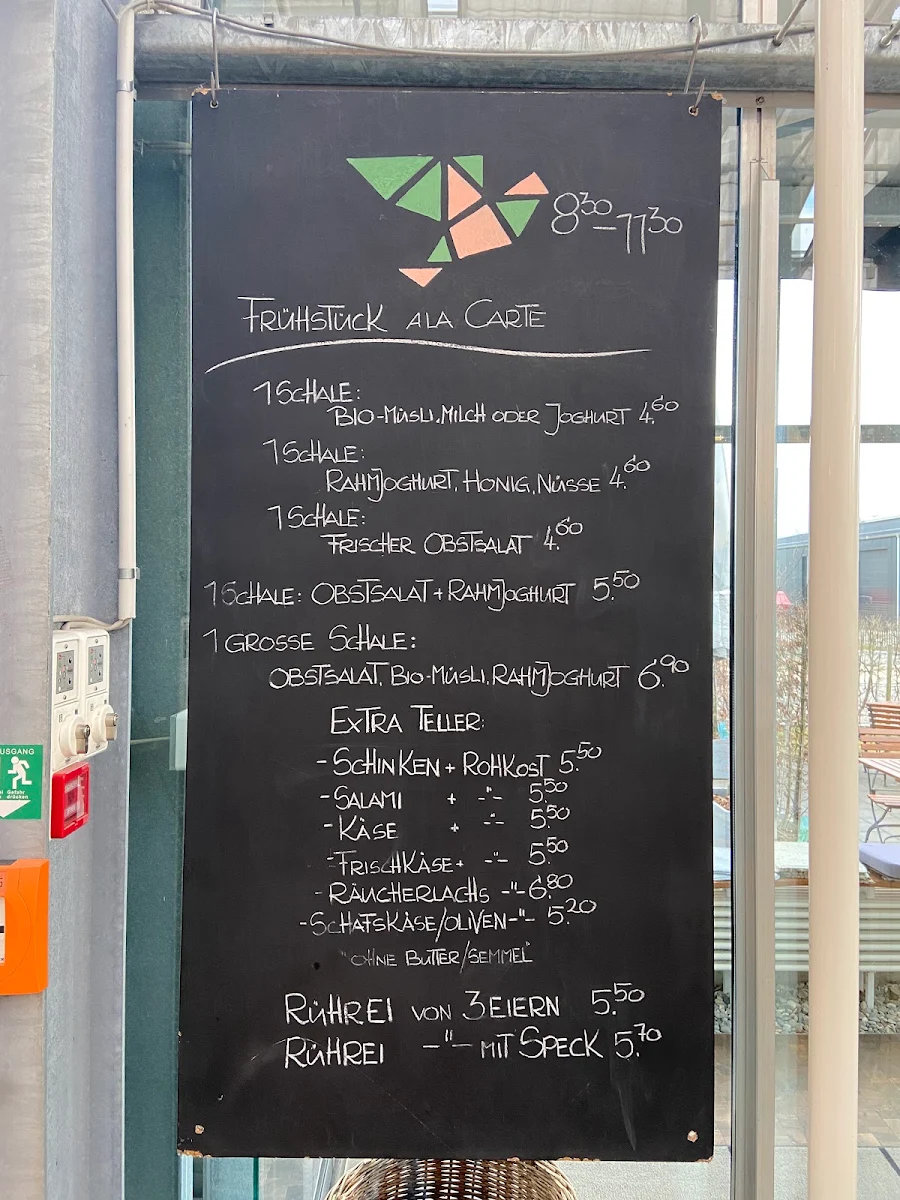 8³⁰–11³⁰
FRÜHSTÜCK A LA CARTE
1 SCHALE:
BIO-MÜSLI, MILCH ODER JOGHURT 4.60
1 SCHALE:
RAHMJOGHURT, HONIG, NÜSSE 4.60
1 SCHALE:
FRISCHER OBSTSALAT 4.60
1 SCHALE: OBSTSALAT + RAHMJOGHURT 5.50
1 GROSSE SCHALE:
OBSTSALAT, BIO-MÜSLI, RAHMJOGHURT 6.90
EXTRA TELLER:
- SCHINKEN + ROHKOST 5.50
- SALAMI + -"- 5.50
- KÄSE + -"- 5.50
- FRISCHKÄSE + -"- 5.50
- RÄUCHERLACHS -"- 6.80
- SCHAFSKÄSE/OLIVEN -"- 5.20
"OHNE BUTTER/SEMMEL"
RÜHREI VON 3 EIERN 5.50
RÜHREI -"- MIT SPECK 5.70
USGANG